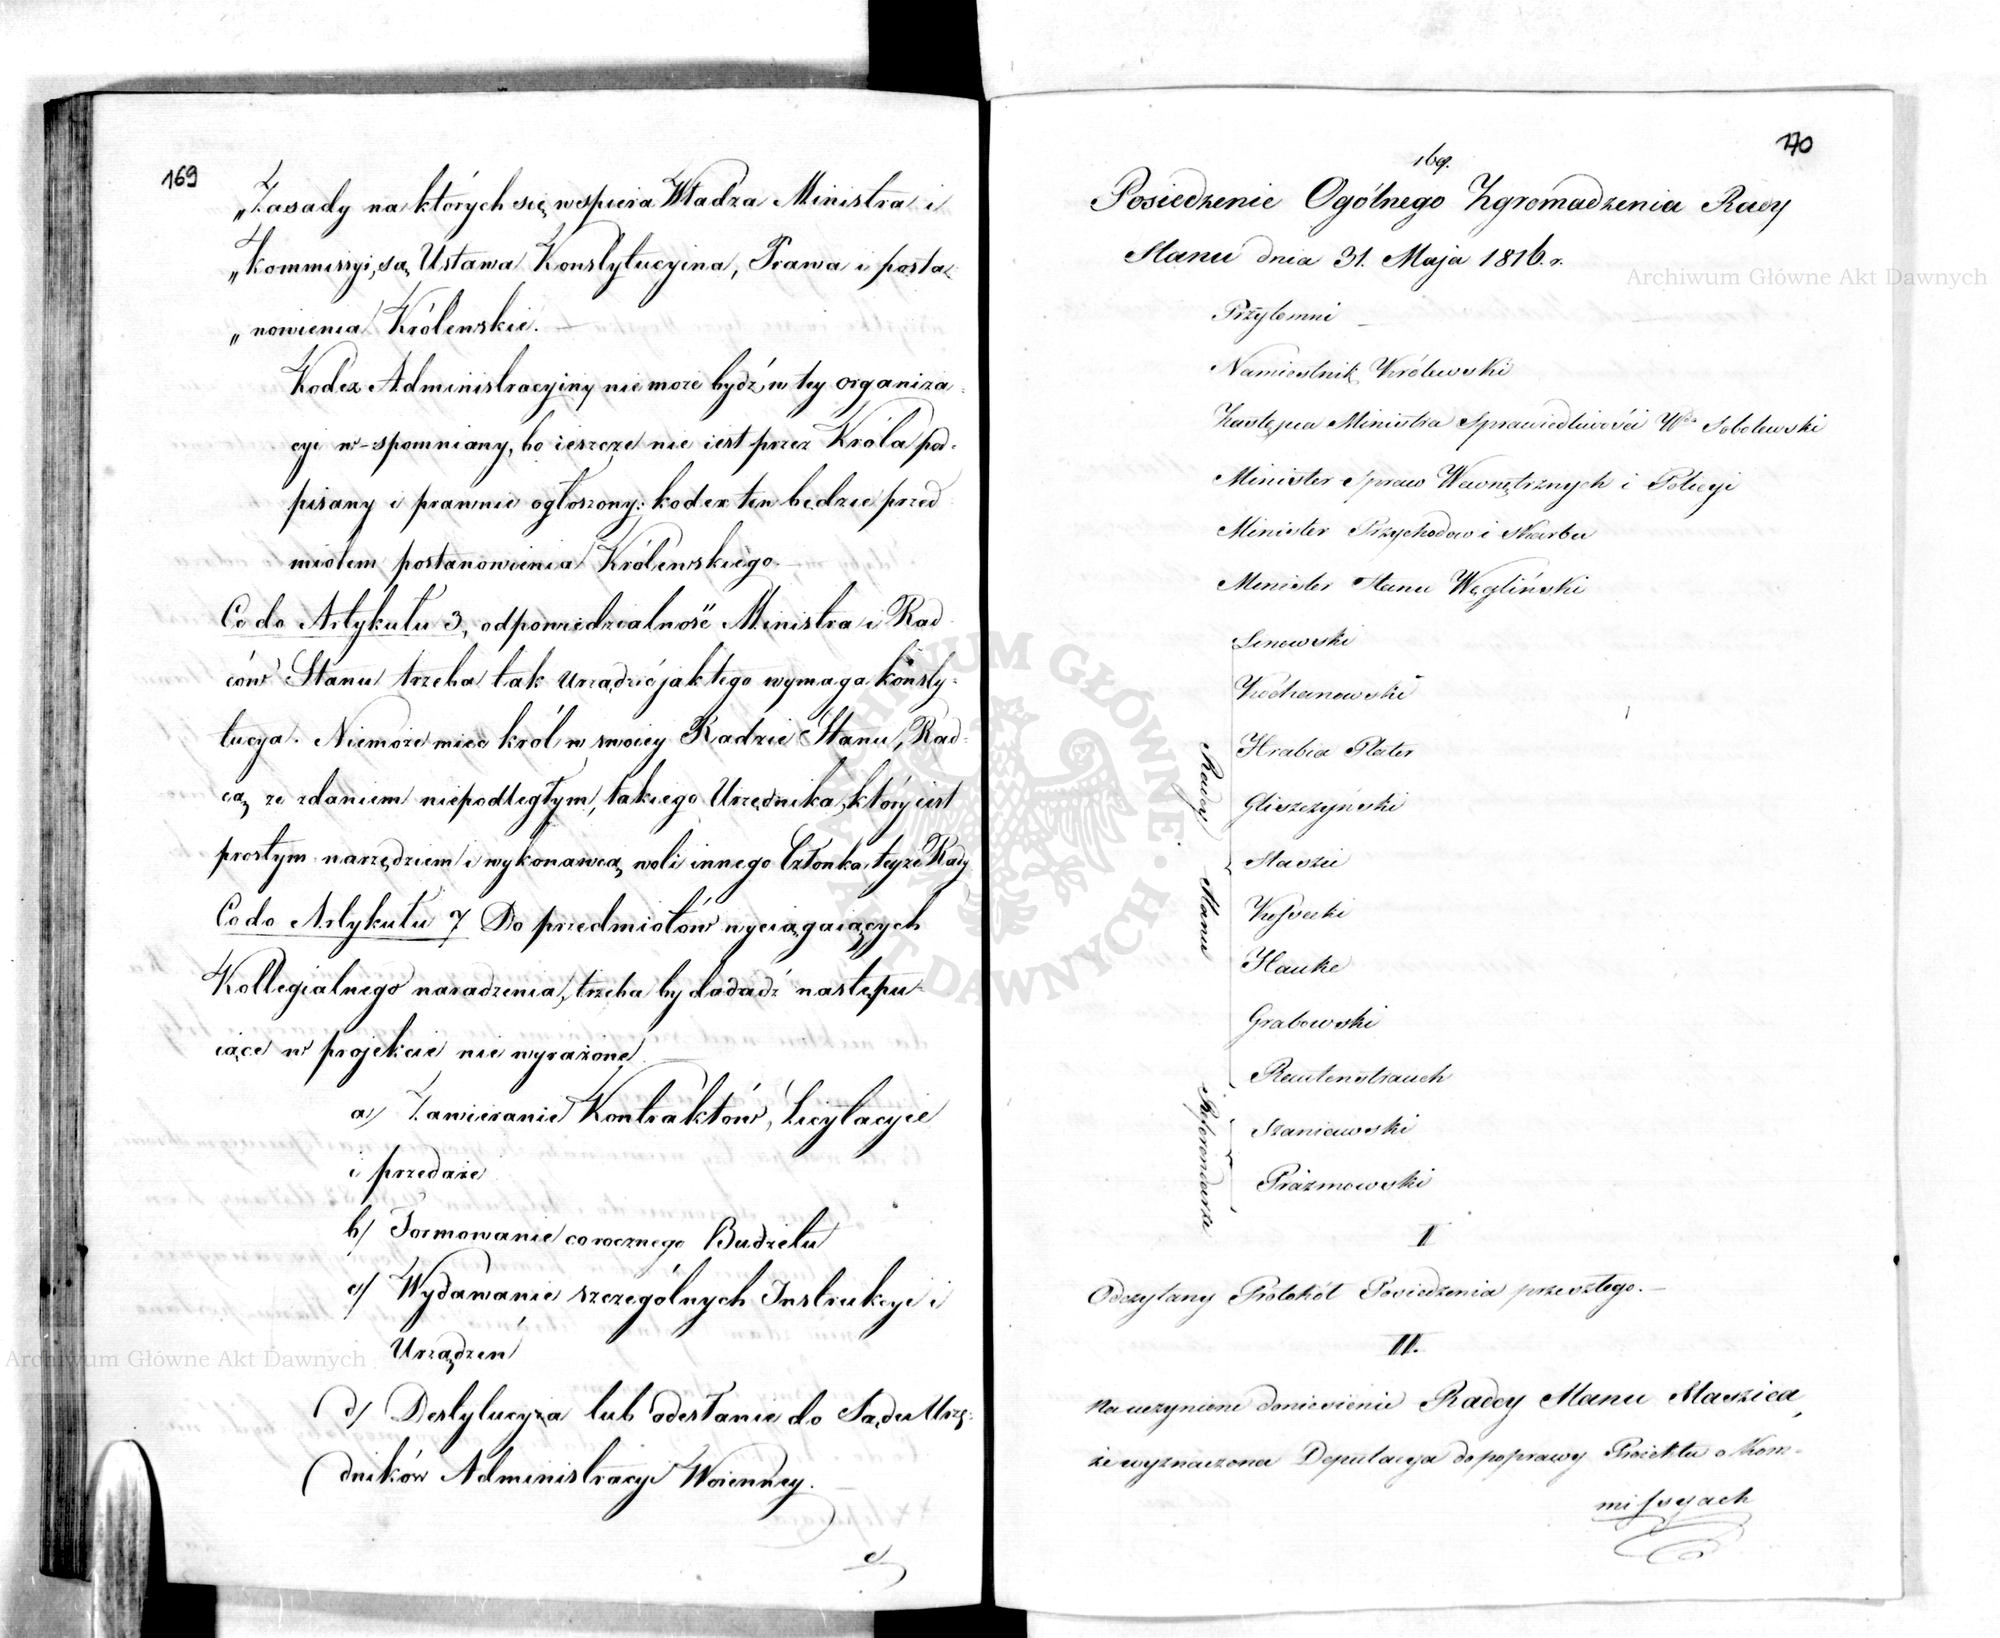 169
„Zasady na których się wspiera Władza Ministra i
„Kommissyi, są, Ustawa Konstytucyina, Prawa i posta„
„nowienia Królewskie. —
Kodex Administracyiny nie może bydź w tey organiza„
cyi w-spomniany, bo ieszcze nie iest przez Króla pod„
pisany i prawnie ogłoszony; kodex ten będzie przed
miotem postanowienia Królewskiego. —
Co do Artykułu 3, odpowiedzialność Ministra i Rad
ców Stanu trzeba tak urządzić jak tego wymaga konsty„
tucya. Niemoże mieć król w swoiey Radzie Stanu, Rad„
cą ze zdaniem niepodległym, takiego Urzędnika, który iest
prostym narzędziem i wykonawcą woli innego Członka teyże Rady
Co do Artykułu 7 Do przedmiotów wyciągaiących
Kollegialnego naradzenia, trzeba by dodadź następu„
iące w projekcie nie wyrażone —
a) Zawieranie Kontraktów, Licytacyie
i przedaże
b) Formowanie corocznego Budżetu
c) Wydawanie szczególnych Instrukcyi i
Urządzeń
d) Destytucyza lub odesłanie do Sądu Urzę„
dników Administracyi Woienney.
e)
170
169.
Posiedzenie Ogólnego Zgromadzenia Rady
Stanu dnia 31. Maja 1816. r.
Przytomni —
Namiestnik Królewski
Zastępca Ministra Sprawiedliwości Sobolewski
Minister Spraw Wewnętrznych i Policyi
Minister Przychodów i Skarbu
Minister Stanu Węgliński
Radcy Stanu
Linowski
Kochanowski
Hrabia Plater
Gliszczyński
Staszic
Kossecki
Hauke
Grabowski
Rautenstrauch
Referendarze
Szaniawski
Prażmowski
I
Odczytany Protokół Posiedzenia przeszłego. —
II.
Na uczynione doniesienie Radcy Stanu Staszica,
że wyznaczona Deputacya do poprawy Projektu o Kom„
missyach
Archiwum Główne Akt Dawnych
Archiwum Główne Akt Dawnych
ARCHIWUM GŁÓWNE AKT DAWNYCH